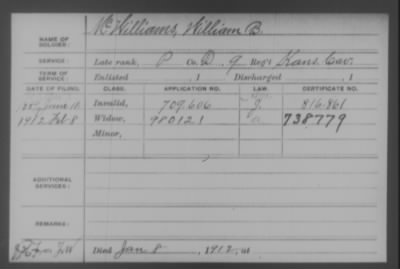 NAME OF SOLDIER: McWilliams, William B.
SERVICE: Late rank, P Co. D, 9 Reg't Kans. Cav.
TERM OF SERVICE: Enlisted , 1 Discharged , 1
DATE OF FILING. CLASS. APPLICATION NO. LAW. CERTIFICATE NO.
June 11 Invalid, 709.606 816.861
1912 Feb 8 Widow, 980121 738779
Minor,
ADDITIONAL SERVICES:
REMARKS:
Died Jan 8, 1912, at